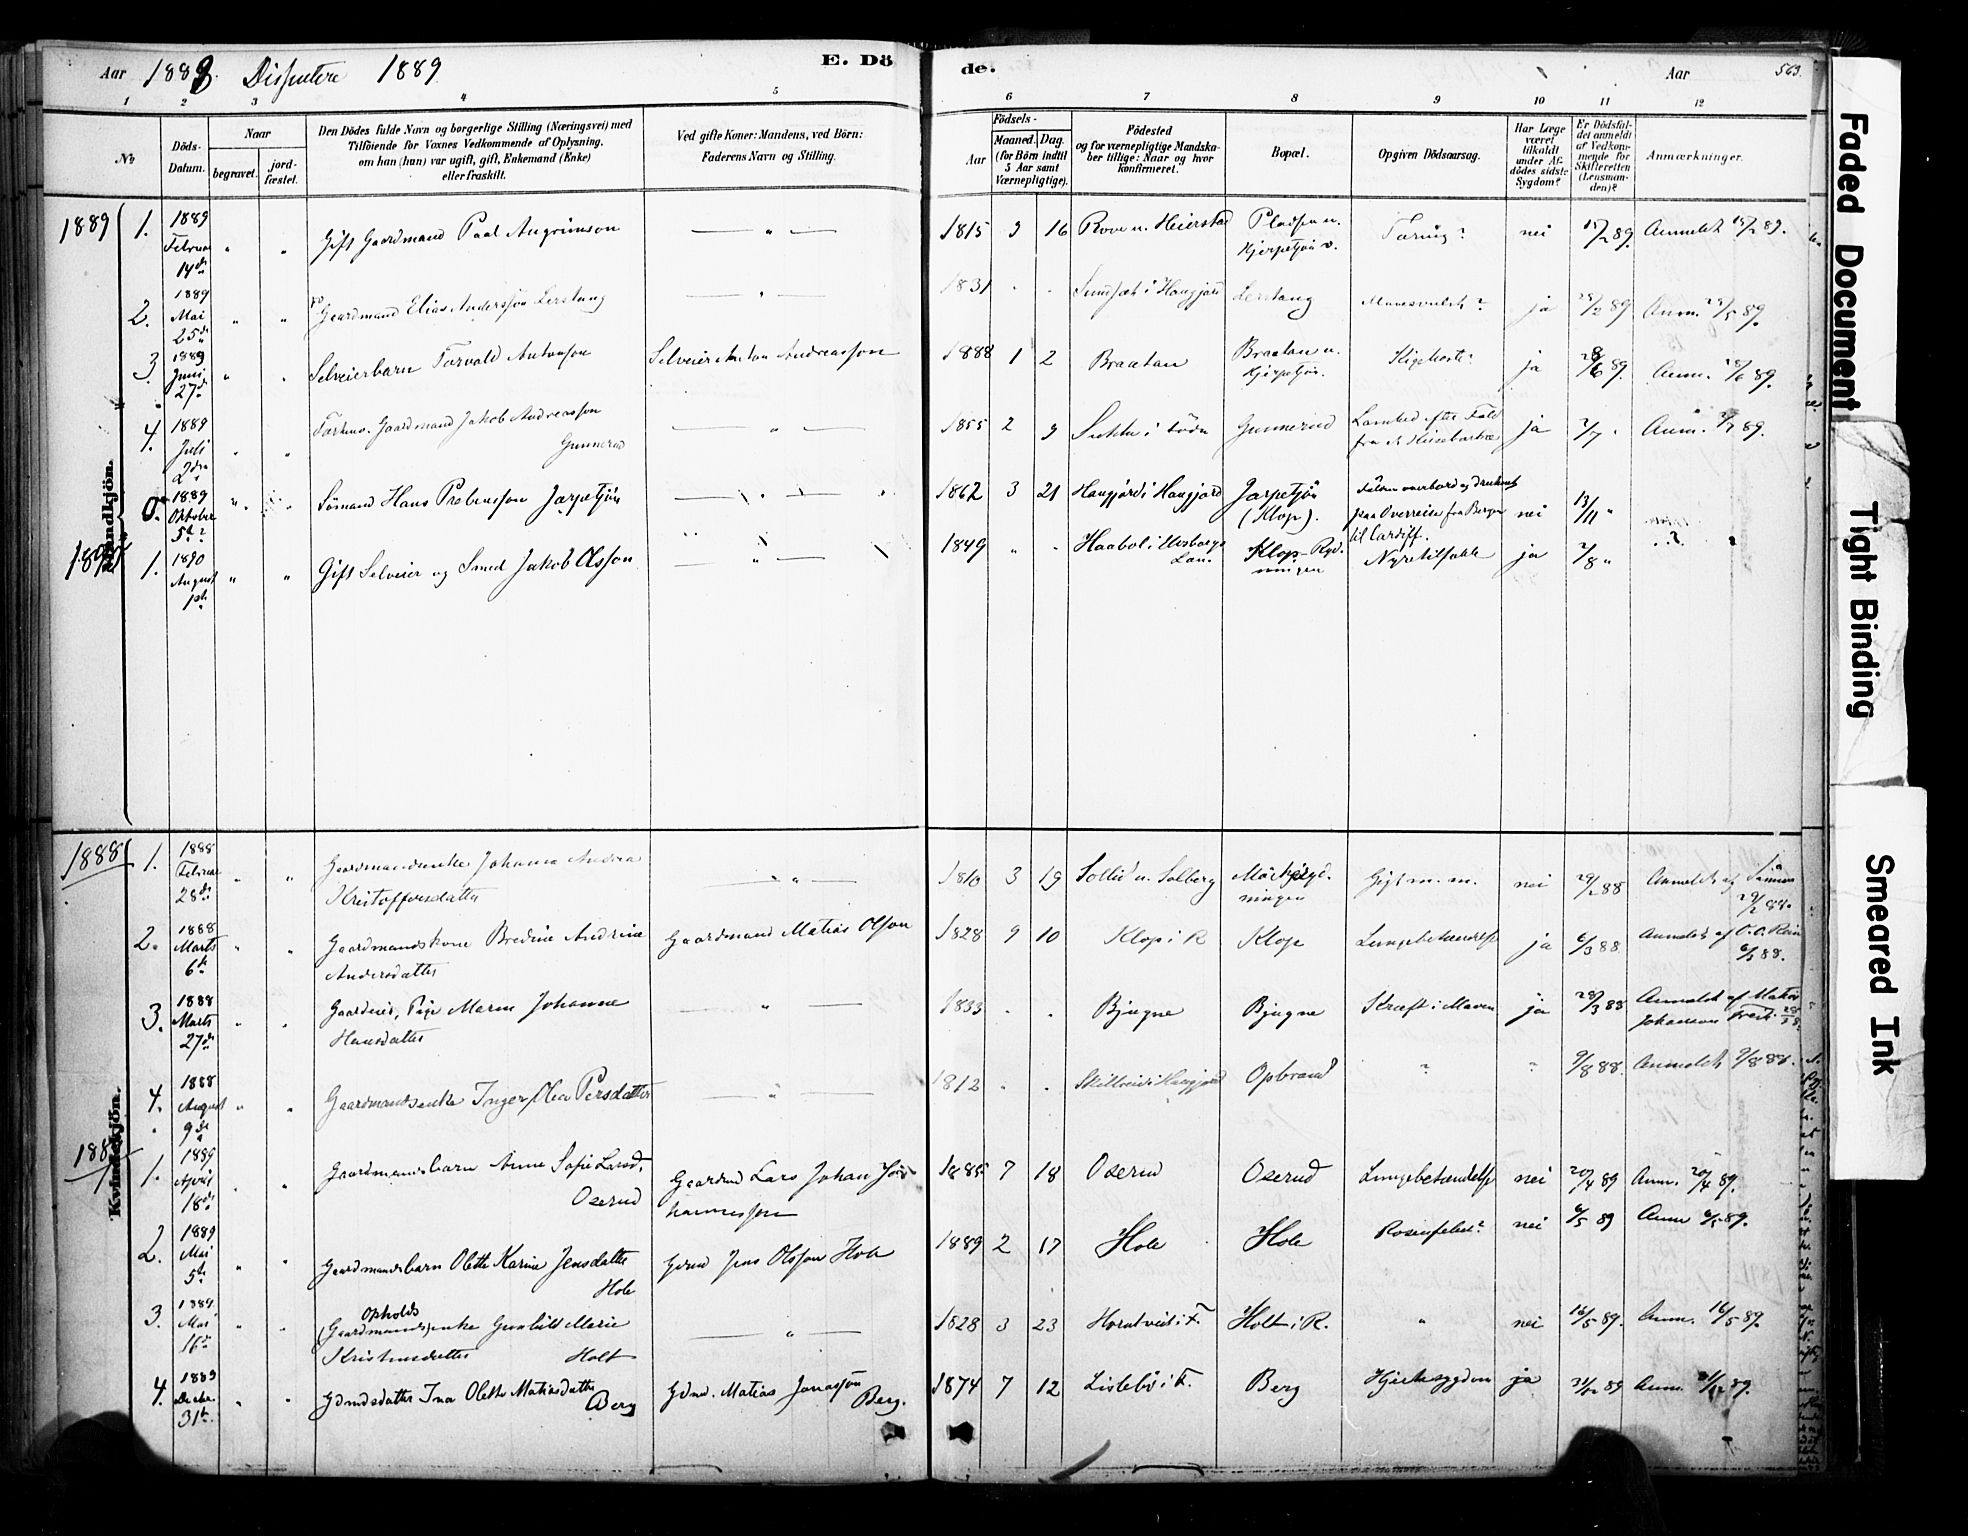 Aar 1888. Dissentere 1889 E. Dö
de. Aar 563.
1 2 3 4 5 6 7 8 9 10 11 12
No
Döds-Datum.
Naar
begravet.
jord-fæstet.
Den Dödes fulde Navn og borgerlige Stilling (Næringsvei) med
Tilföiende for Voxnes Vedkommende af Oplysning.
om han (hun) var ugift, gift, Enkemand (Enke)
eller fraskilt.
Ved gifte Koner: Mandens, ved Börn:
Faderens Navn og Stilling.
Födsels-
Aar
Maaned.
Dag.
(for Börn indtil
5 Aar samt
Værnepligtige).
Födested
og for værnepligtige Mandska-
ber tillige: Naar og hvor
konfirmeret.
Bopæl.
Opgiven Dödsaarsag.
Har Læge
været
tilkaldt
under Af-
dödes sidste
Sygdom?
Er Dödsfal-
det anmeldt
af Vedkom-
mende for
Skifteretten
(Lensman-
den)?
Anmærkninger.
Mandkjön.
1889 1. 1889 Februar 14de " " Gift Gaardmand Paal Angrimson — " — 1815 9 16 Rove u. Heierstad Pladsen u. Kjerpetjön v. Tæring? nei 15/2 89. Anmeldt 15/2 89.
2. 1889 Mai 25de " " Gaardmand Elias Andersson Lerstang — " — 1831 " " Sundsæt i Haugjord Lerstang Mavesvulst? ja 28/2 89 Anm. 28/5 89.
3. 1889 Juni 27de " " Selveierbarn Torvald Antonson Selveier Anton Andreasson 1888 1 2 Braatan Braatan u. Kjerpetjön. Kighoste? ja 28/6 89. Anm. 28/6 89.
4. 1889 Juli 2den " " Gaardmand Jakob Andreasson Gunnerud — " — 1855 2 9 Gunnerud ja 2/7 " Anm. 2/7 89.
1889 Oktober 5te? " " Sömand Hans Jarpetjön — " — 1862 3 21 Haugjord i Haugjord Jarpetjön (Klop). Falden overbord og druknet paa Overreise fra Bergen til Cardiff. nei 13/11 "
1890 1. 1890 August 1ste " " Gift Selveier og Smed Jakob Olsson — " — 1849 " " Haabol i Klop-Ryd-ningen Nyretilfælde ja 2/8 "
Kvindekjön.
1888 1. 1888 Februar 28de " " Gaardmandsenke Johanne Andrea Kristoffersdatter — " — 1810 3 19 Sollid u. Solberg ningen Gigt m. m. nei 29/2 88 Anmeldt af 29/2 88.
2. 1888 Marts 6te " " Gaardmandskone Bredine Andrine Andersdatter Gaardmand Matias Olson 1828 9 10 Klop i R Klop Lungebetændelse ja 6/3 88 Anmeldt af O.O. 6/3 88.
3. 1888 Marts 27de " " Gaardeier, Pige Maren Johanne Hansdatter — " — 1833 " " Bjugne Bjugne Kræft i Maven ja 28/3 88 Anmeldt af Matias Johanson
4. 1888 August 9de " " Gaardmandsenke Inger Olea Persdatter — " — 1812 " " i Haugjord Opbrand ? " 9/8 88. Anmeldt 9/8 88.
1889 1. 1889 April 18de " " Gaardmandsbarn Anne Sofie Larsd. Oserud Gaardmd Lars Johan Johannesson 1885 7 18 Oserud Oserud Lungebetændelse nei 20/4 89 Anm. 20/4 89.
2. 1889 Mai 5te " " Gaardmandsbarn Olette Karine Jensdatter Hole Gdmd Jens Olsson Hole 1889 2 17 Hole Hole Rosenfeber? nei 6/5 89 Anm 6/5 89.
3. 1889 Mai 16de " " Opholds (Gaardmands)enke Gunhild Marie Kristensdatter Holt — " — 1828 3 23 Holt i R. " nei 16/5 89. Anm. 16/5 89.
4. 1889 Decbr. 31te " " Gdmdsdatter Ina Olette Matiasdatter Berg Gdmd. Matias Jonasson Berg. 1874 7 12 Berg Hjertesygdom ja 31/12 89 Anm. 31/12 89.
Faded Document
Tight Binding
Smeared Ink